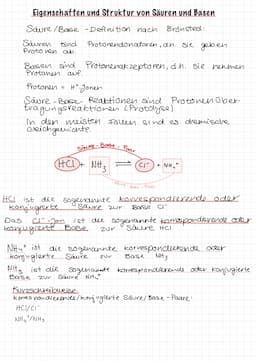 Eigenschaften und Struktur von Säuren und Basen
Säure/Base-Definition nach Brønsted:
Säuren sind Protonendonatoren, d.h. sie geben
Protonen ab.
Basen sind Protonenakzeptoren, d.h. sie nehmen
Protonen auf.
Protonen = H⁺-Ionen
Säure-Base-Reaktionen sind Protonenüber-
tragungsreaktionen (Protolyse)
In den meisten Fällen sind es chemische
Gleichgewichte.
Säure-Base-Paar
HCl + NH₃ ⇌ Cl⁻ + NH₄⁺
HCl ist die sogenannte korrespondierende oder
konjugierte Säure zur Base Cl⁻
Das Cl⁻-Ion ist die sogenannte korrespondierende oder
konjugierte Base zur Säure HCl
NH₄⁺ ist die sogenannte korrespondierende oder
konjugierte Säure zur Base NH₃
NH₃ ist die sogenannte korrespondierende oder konjugierte
Base zur Säure NH₄⁺
Kurzschreibweise:
korrespondierende/konjugierte Säure/Base-Paare:
HCl/Cl⁻
NH₄⁺/NH₃